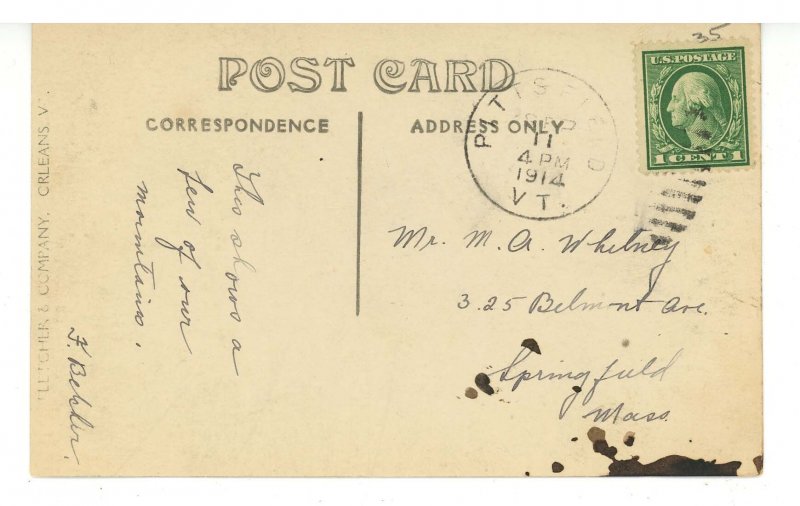 35
U.S. POSTAGE
1 CENT 1
POST CARD
CORRESPONDENCE
ADDRESS ONLY
PITTSFIELD
11
4 PM
1914
VT.
This shows a
few of our
mountains.
Mr. M. A. Whitney
325 Belmont Ave.
Springfield
Mass.
& COMPANY, ORLEANS, V